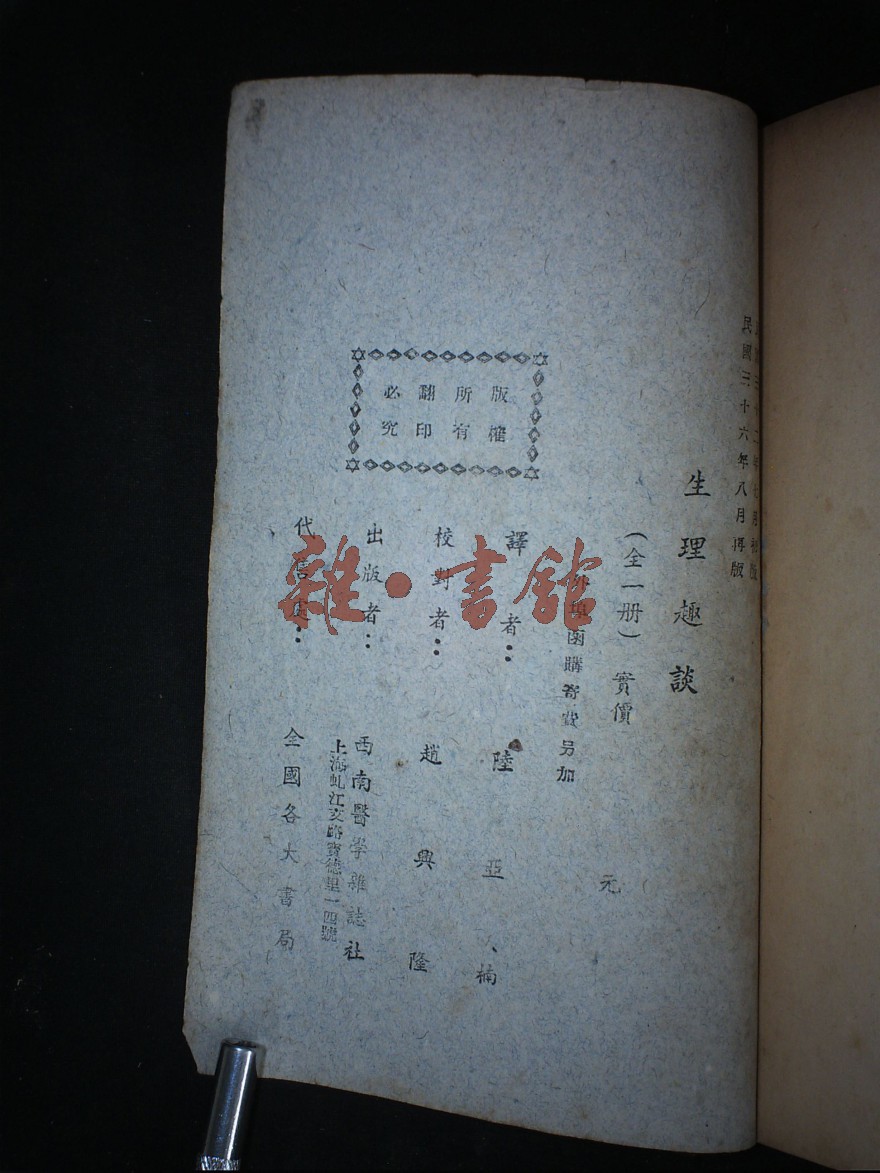 民國三十六年八月再版
生理趣談
(全一册) 實價 元
外埠函購寄費另加
譯者: 陸亞楠
校對者: 趙興隆
出版者: 西南醫學雜誌社
上海虬江支路寶德里一四號
代售處: 全國各大書局
版權
所有
翻印
必究
雜·書館